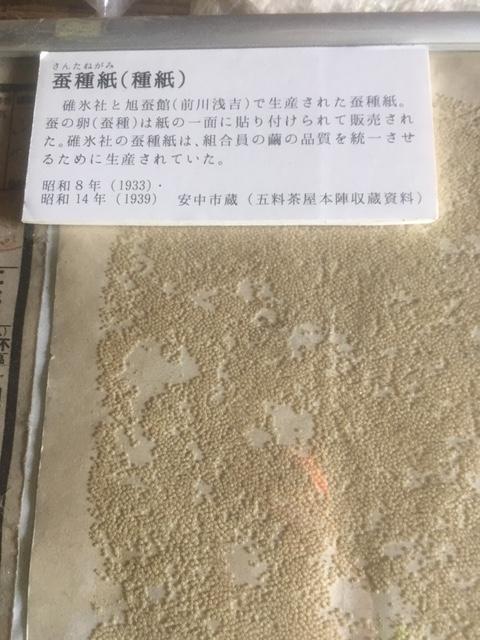 さんたねがみ
蚕種紙(種紙)
碓氷社と旭蚕館(前川浅吉)で生産された蚕種紙。
蚕の卵(蚕種)は紙の一面に貼り付けられて販売され
た。碓氷社の蚕種紙は、組合員の繭の品質を統一させ
るために生産されていた。
昭和8年(1933)・
昭和14年(1939) 安中市蔵(五料茶屋本陣収蔵資料)